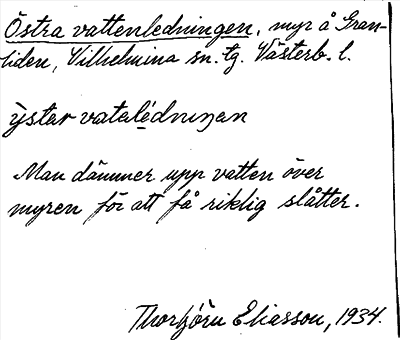 Östra vattenledningen, myr å Gran-
liden, Vilhelmina sn. tg. Västerb. l.
ÿstar vatalédnıŋen
Man dämmer upp vatten över
myren för att få riklig slåtter.
Thorbjörn Eliasson, 1934.